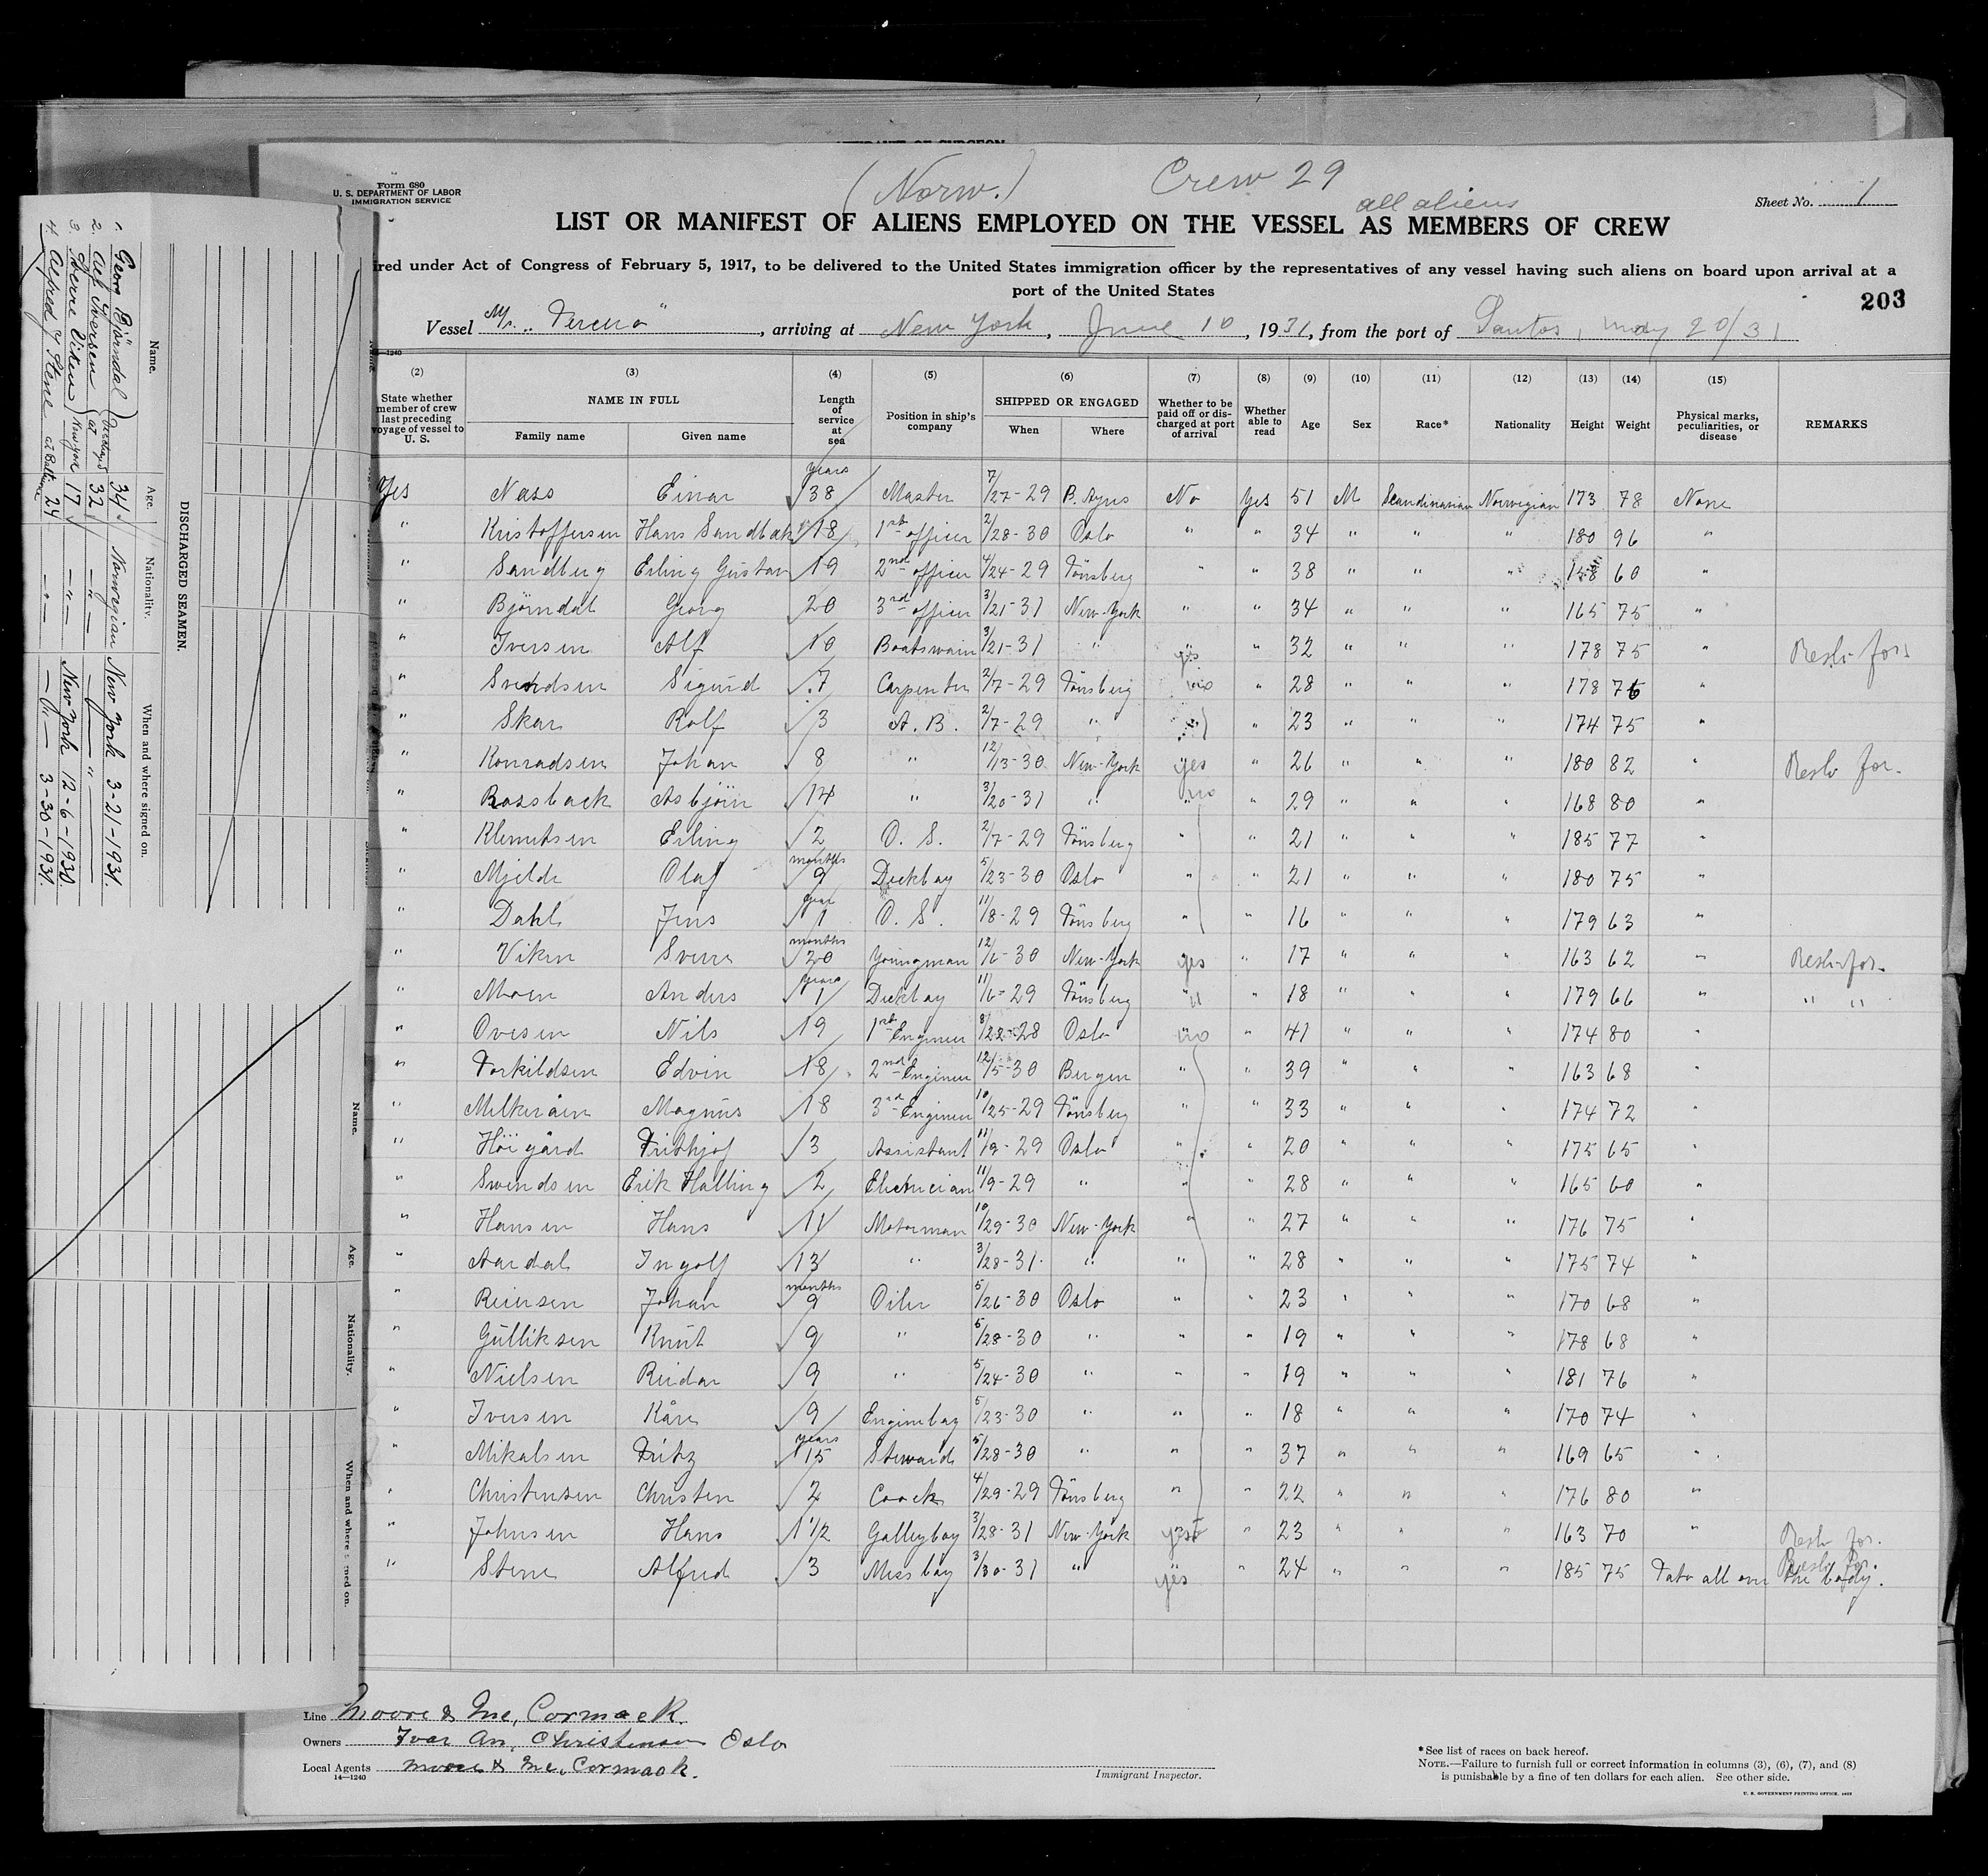 Form 680
U. S. DEPARTMENT OF LABOR
IMMIGRATION SERVICE
(Norw.)
Crew 29
all aliens
Sheet No. 1
LIST OR MANIFEST OF ALIENS EMPLOYED ON THE VESSEL AS MEMBERS OF CREW
ired under Act of Congress of February 5, 1917, to be delivered to the United States immigration officer by the representatives of any vessel having such aliens on board upon arrival at a
port of the United States
203
Vessel M/s, arriving at New York, June 10, 1931, from the port of Santos, may 20/31
(2) (3) (4) (5) (6) (7) (8) (9) (10) (11) (12) (13) (14) (15)
State whether member of crew last preceding voyage of vessel to U. S. NAME IN FULL Family name Given name Length of service at sea Position in ship's company SHIPPED OR ENGAGED When Where Whether to be paid off or discharged at port of arrival Whether able to read Age Sex Race* Nationality Height Weight Physical marks, peculiarities, or disease REMARKS
Yes Nass Einar years 38 Master 7/27-29 B. Ayres No Yes 51 M Scandinavian Norwegian 173 78 None
" Kristoffersen Hans Sandbak 18 1st officer 2/28-30 Oslo " " 34 " " " 180 96 "
" Sandberg Erling Gustav 19 2nd officer 4/24-29 Tönsberg " " 38 " " " 158 60 "
" Björndal Georg 20 3rd officer 3/21-31 New-York " " 34 " " " 165 75 "
" Iversen Alf 10 Boatswain 3/21-31 " yes " 32 " " " 178 75 "
" Svendsen Sigurd 7 Carpenter 2/7-29 Tönsberg no " 28 " " " 178 76 "
" Skar Rolf 3 A. B. 2/7-29 " " " 23 " " " 174 75 "
" Konradsen Johan 8 " 12/13-30 New-York yes " 26 " " " 180 82 "
" Rossback Asbjörn 14 " 3/20-31 " no " 29 " " " 168 80 "
" Klemetsen Erling 2 O. S. 2/7-29 Tönsberg " " 21 " " " 185 77 "
" Mjelde Olaf months 9 Deckboy 5/23-30 Oslo " " 21 " " " 180 75 "
" Dahl Jens year 1 O. S. 11/8-29 Tönsberg " " 16 " " " 179 63 "
" Viken Sverre months 20 Youngman 12/6-30 New-York yes " 17 " " " 163 62 "
" Moen Anders years 1 Deckboy 11/6-29 Tönsberg " " 18 " " " 179 66 " " "
" Ovesen Nils 19 1st Engineer 8/22-28 Oslo no " 41 " " " 174 80 "
" Torkildsen Edvin 18 2nd Engineer 12/5-30 Bergen " " 39 " " " 163 68 "
" Melkeråen Magnus 18 3rd Engineer 10/25-29 Tönsberg " " 33 " " " 174 72 "
" Höigård Frithjof 3 Assistant 11/9-29 Oslo " " 20 " " " 175 65 "
" Swendsen Erik Halling 2 Electrician 11/9-29 " " " 28 " " " 165 60 "
" Hansen Hans 11 Motorman 10/29-30 New-York " " 27 " " " 176 75 "
" Aardal Ingolf 13 " 3/28-31 " " " 28 " " " 175 74 "
" Reiersen Johan months 9 Oiler 5/26-30 Oslo " " 23 " " " 170 68 "
" Gulliksen Knut 9 " 5/28-30 " " " 19 " " " 178 68 "
" Nielsen Reidar 9 " 5/24-30 " " " 19 " " " 181 76 "
" Iversen Kåre 9 Engineboy 5/23-30 " " " 18 " " " 170 74 "
" Mikalsen Fritz years 15 Steward 5/28-30 " " 37 " " " 169 65 "
" Christensen Christen 2 Coock 4/29-29 Tönsberg " " 22 " " " 176 80 "
" Johnsen Hans 1 1/2 Galleyboy 3/28-31 New-York yes " 23 " " " 163 70 "
" Stene Alfred 3 Messboy 3/30-31 " yes " 24 " " " 185 75 Tato all over the body.
Line Moore & Mc. Cormack.
Owners Ivar An. Christensen Oslo
Local Agents Moore & Mc. Cormack.
14—1240
Immigrant Inspector.
*See list of races on back hereof.
NOTE.—Failure to furnish full or correct information in columns (3), (6), (7), and (8)
is punishable by a fine of ten dollars for each alien. See other side.
DISCHARGED SEAMEN.
Name. Age. Nationality. When and where signed on.
1. Georg Björndal 34 Norwegian New York 3-21-1931.
2. Alf Iversen at 32 — " — — " —
3. Sverre Viken New York 17 — " — New York 12-6-1930.
4. Alfred Stene at Baltimore 24 — " — — " — 3-30-1931.
Name. Age. Nationality. When and where signed on.